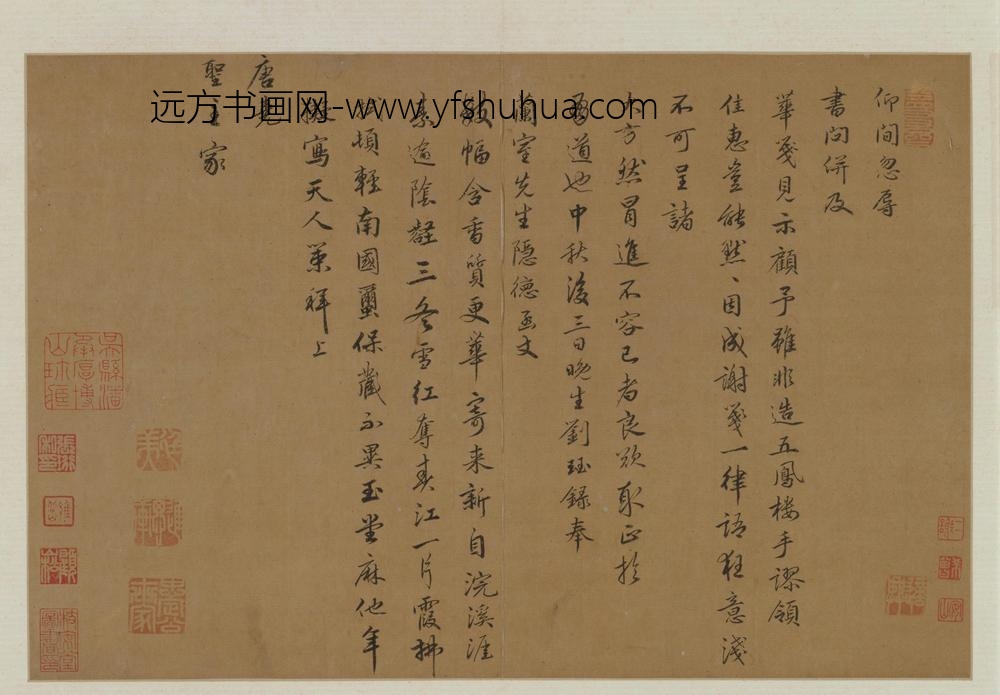 仰間忽辱
書問併及
華箋見示顧予雖非造五鳳楼手謬領
佳惠豈能默、因成謝箋一律語狂意淺
不可呈諸
大方然冒進不容已者良欲取正於
有道也中秋後三日晚生劉珏録奉
蘭室先生隱德函丈
數幅含香質更華寄来新自浣溪涯
素逾陰壑三冬雪紅奪春江一片霞拂
頓輕南國璽保蔵不異玉堂麻他年
寫天人策祥上
唐
聖主家
远方书画网-www.yfshuhua.com